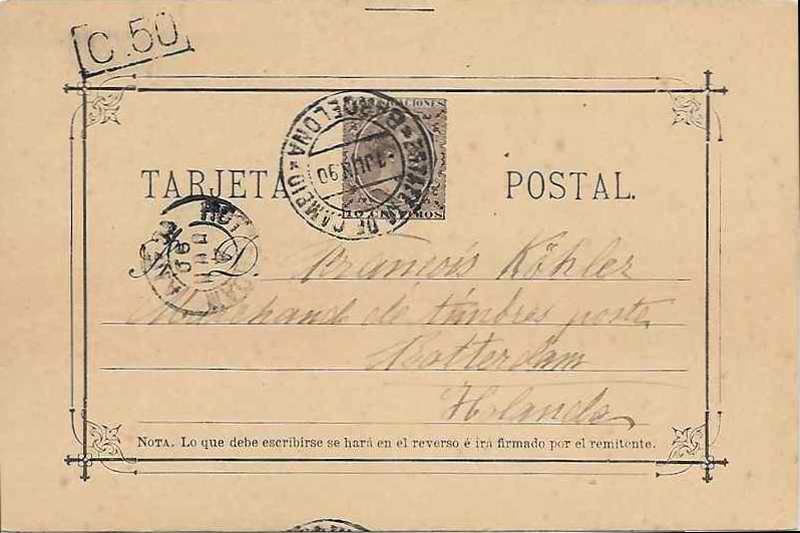 C.50
COMUNICACIONES
10 CENTIMOS
ESTAFETA DE CAMBIO
* BARCELONA *
1 JUN 90
TARJETA POSTAL.
ROTTERDAM
D. François Köhler
Marchand de timbres poste
Rotterdam
Holanda
NOTA. Lo que debe escribirse se hará en el reverso é irá firmado por el remitente.